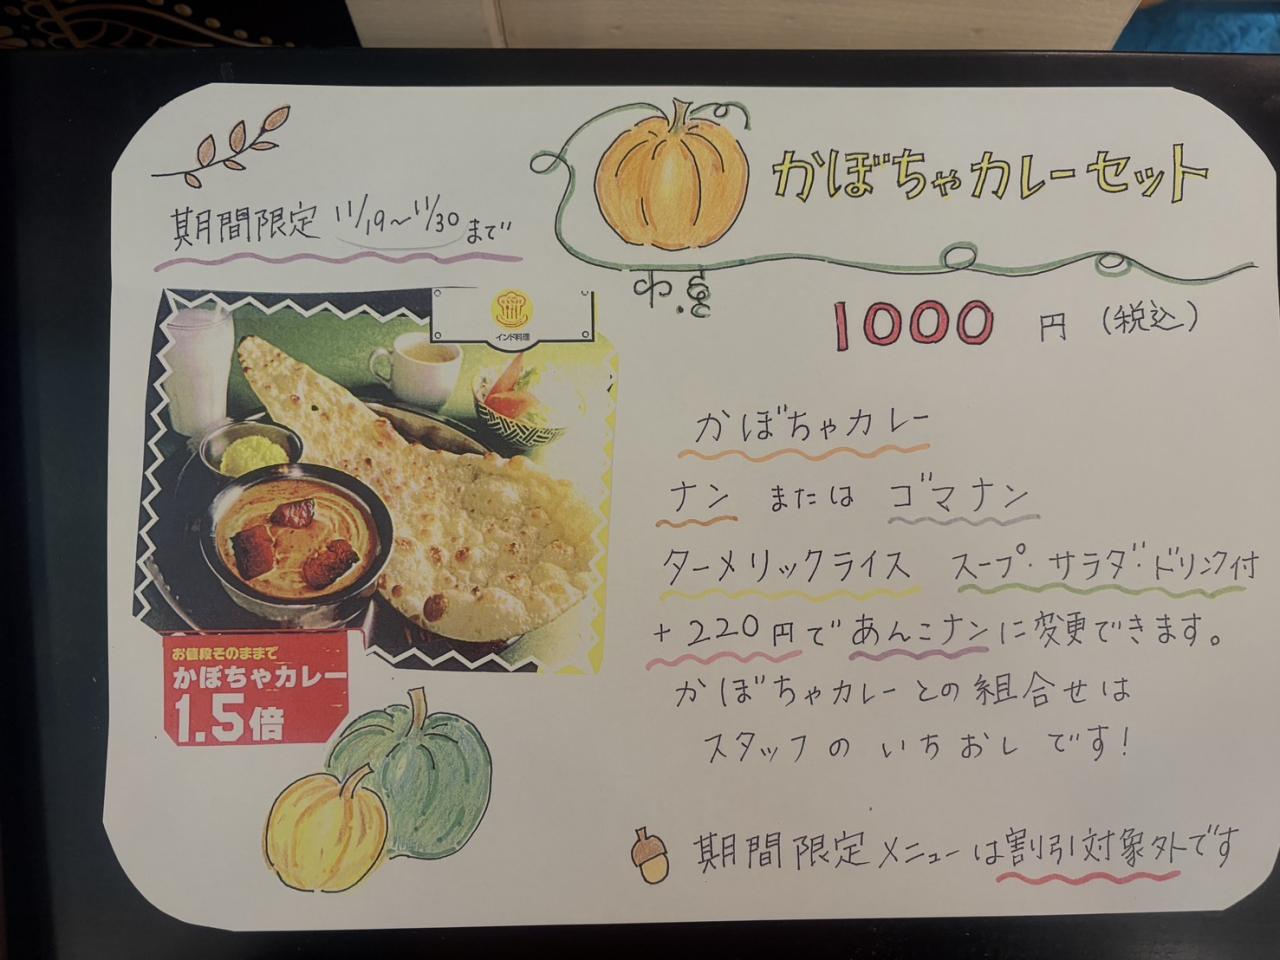 かぼちゃカレーセット
期間限定 11/19〜11/30まで
1000円(税込)
インド料理
かぼちゃカレー
ナン または ゴマナン
ターメリックライス スープ・サラダ・ドリンク付
+220円であんこナンに変更できます。
かぼちゃカレーとの組合せは
スタッフのいちおしです!
お値段そのままで
かぼちゃカレー
1.5倍
期間限定メニューは割引対象外です